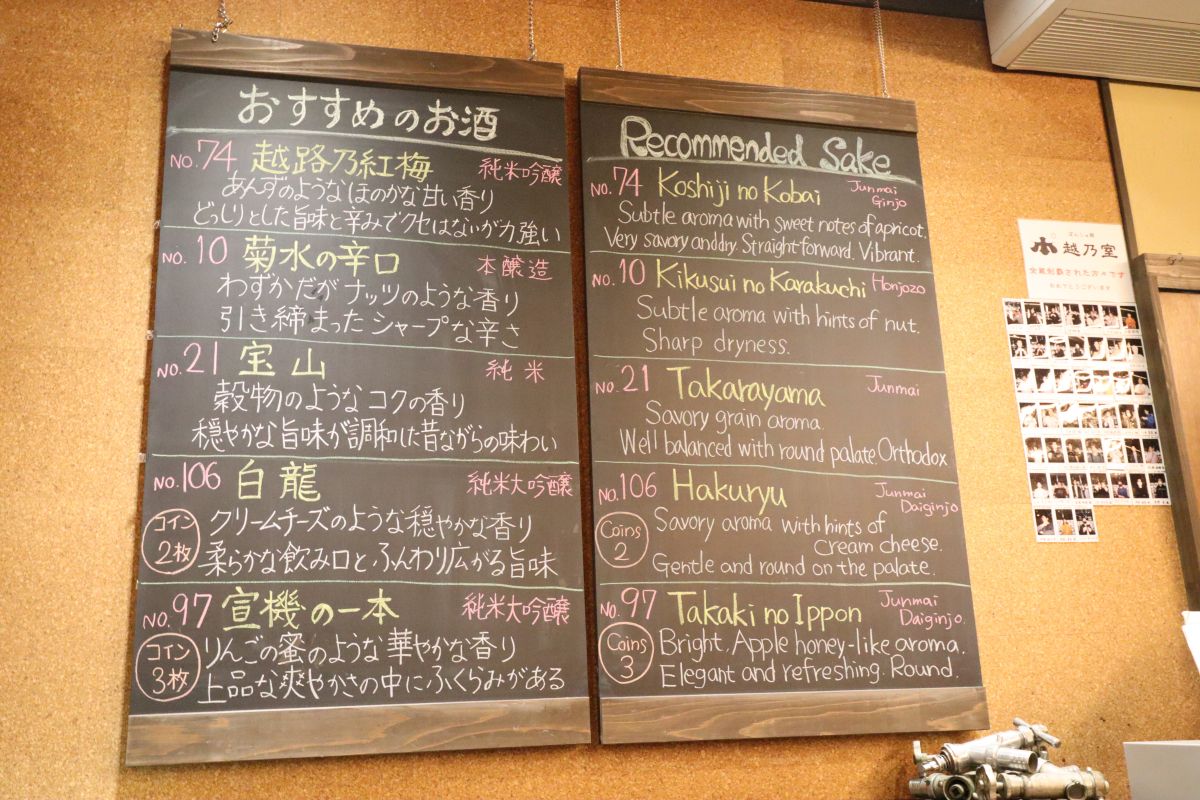 おすすめのお酒
No.74 越路乃紅梅 純米吟醸
あんずのようなほのかな甘い香り
どっしりとした旨味と辛みでクセはないが力強い
No.10 菊水の辛口 本醸造
わずかだがナッツのような香り
引き締まったシャープな辛さ
No.21 宝山 純米
穀物のようなコクの香り
穏やかな旨味が調和した昔ながらの味わい
No.106 白龍 純米大吟醸
コイン2枚
クリームチーズのような穏やかな香り
柔らかな飲み口とふんわり広がる旨味
No.97 宣機の一本 純米大吟醸
コイン3枚
りんごの蜜のような華やかな香り
上品な爽やかさの中にふくらみがある
Recommended Sake
No.74 Koshiji no Kobai Junmai Ginjo
Subtle aroma with sweet notes of apricot.
Very savory and dry. Straightforward. Vibrant.
No.10 Kikusui no Karakuchi Honjozo
Subtle aroma with hints of nut.
Sharp dryness.
No.21 Takarayama Junmai
Savory grain aroma.
Well balanced with round palate. Orthodox
No.106 Hakuryu Junmai Daiginjo
Coins 2
Savory aroma with hints of
Cream cheese.
Gentle and round on the palate.
No.97 Takaki no Ippon Junmai Daiginjo.
Coins 3
Bright. Apple honey-like aroma.
Elegant and refreshing. Round.
ぽんしゅ館
越乃室
全蔵制覇された方々です
おめでとうございます